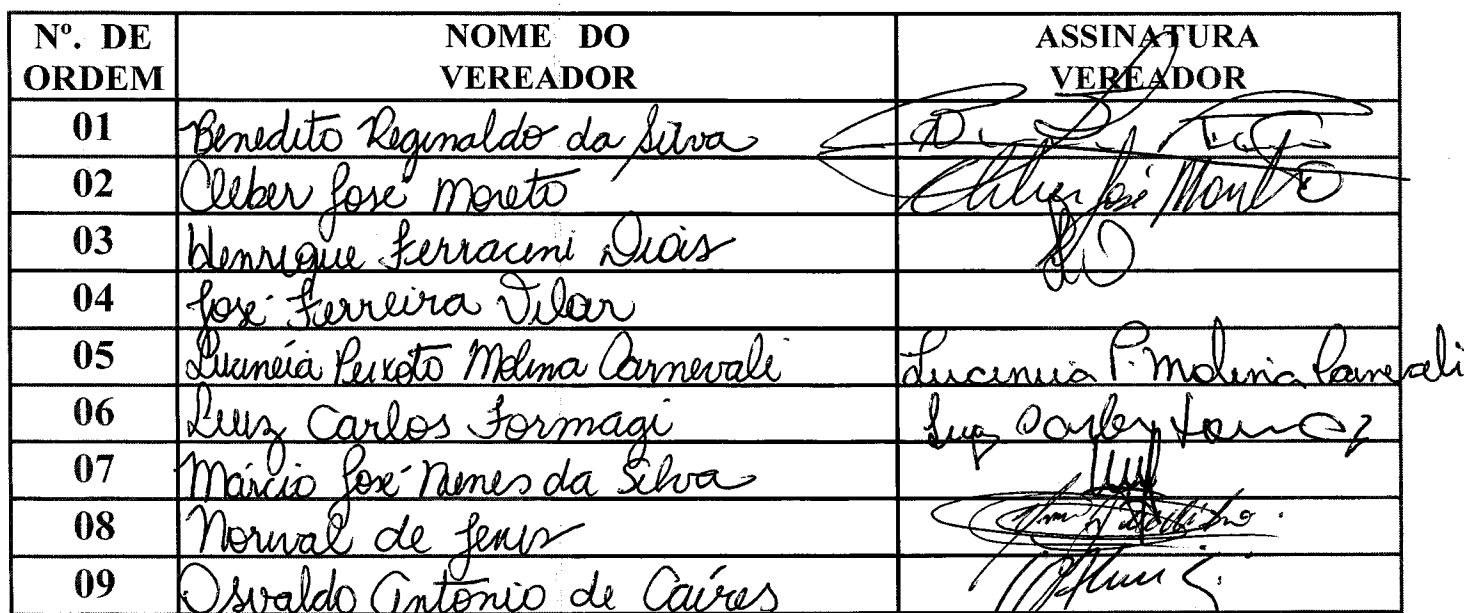 Nº. DE ORDEM NOME DO VEREADOR ASSINATURA VEREADOR
01 Benedito Reginaldo da Silva
02 Cleber José Moreto Cleber José Moreto
03 Henrique Ferracini Diais
04 José Ferreira Vilar
05 Lucinéia Peixoto Molina Carnevali Lucineia P. Molina Carnevali
06 Luiz Carlos Formagi Luiz Carlos
07 Márcio José Nunes da Silva
08 Norival de Jesus
09 Osvaldo Antonio de Caíres